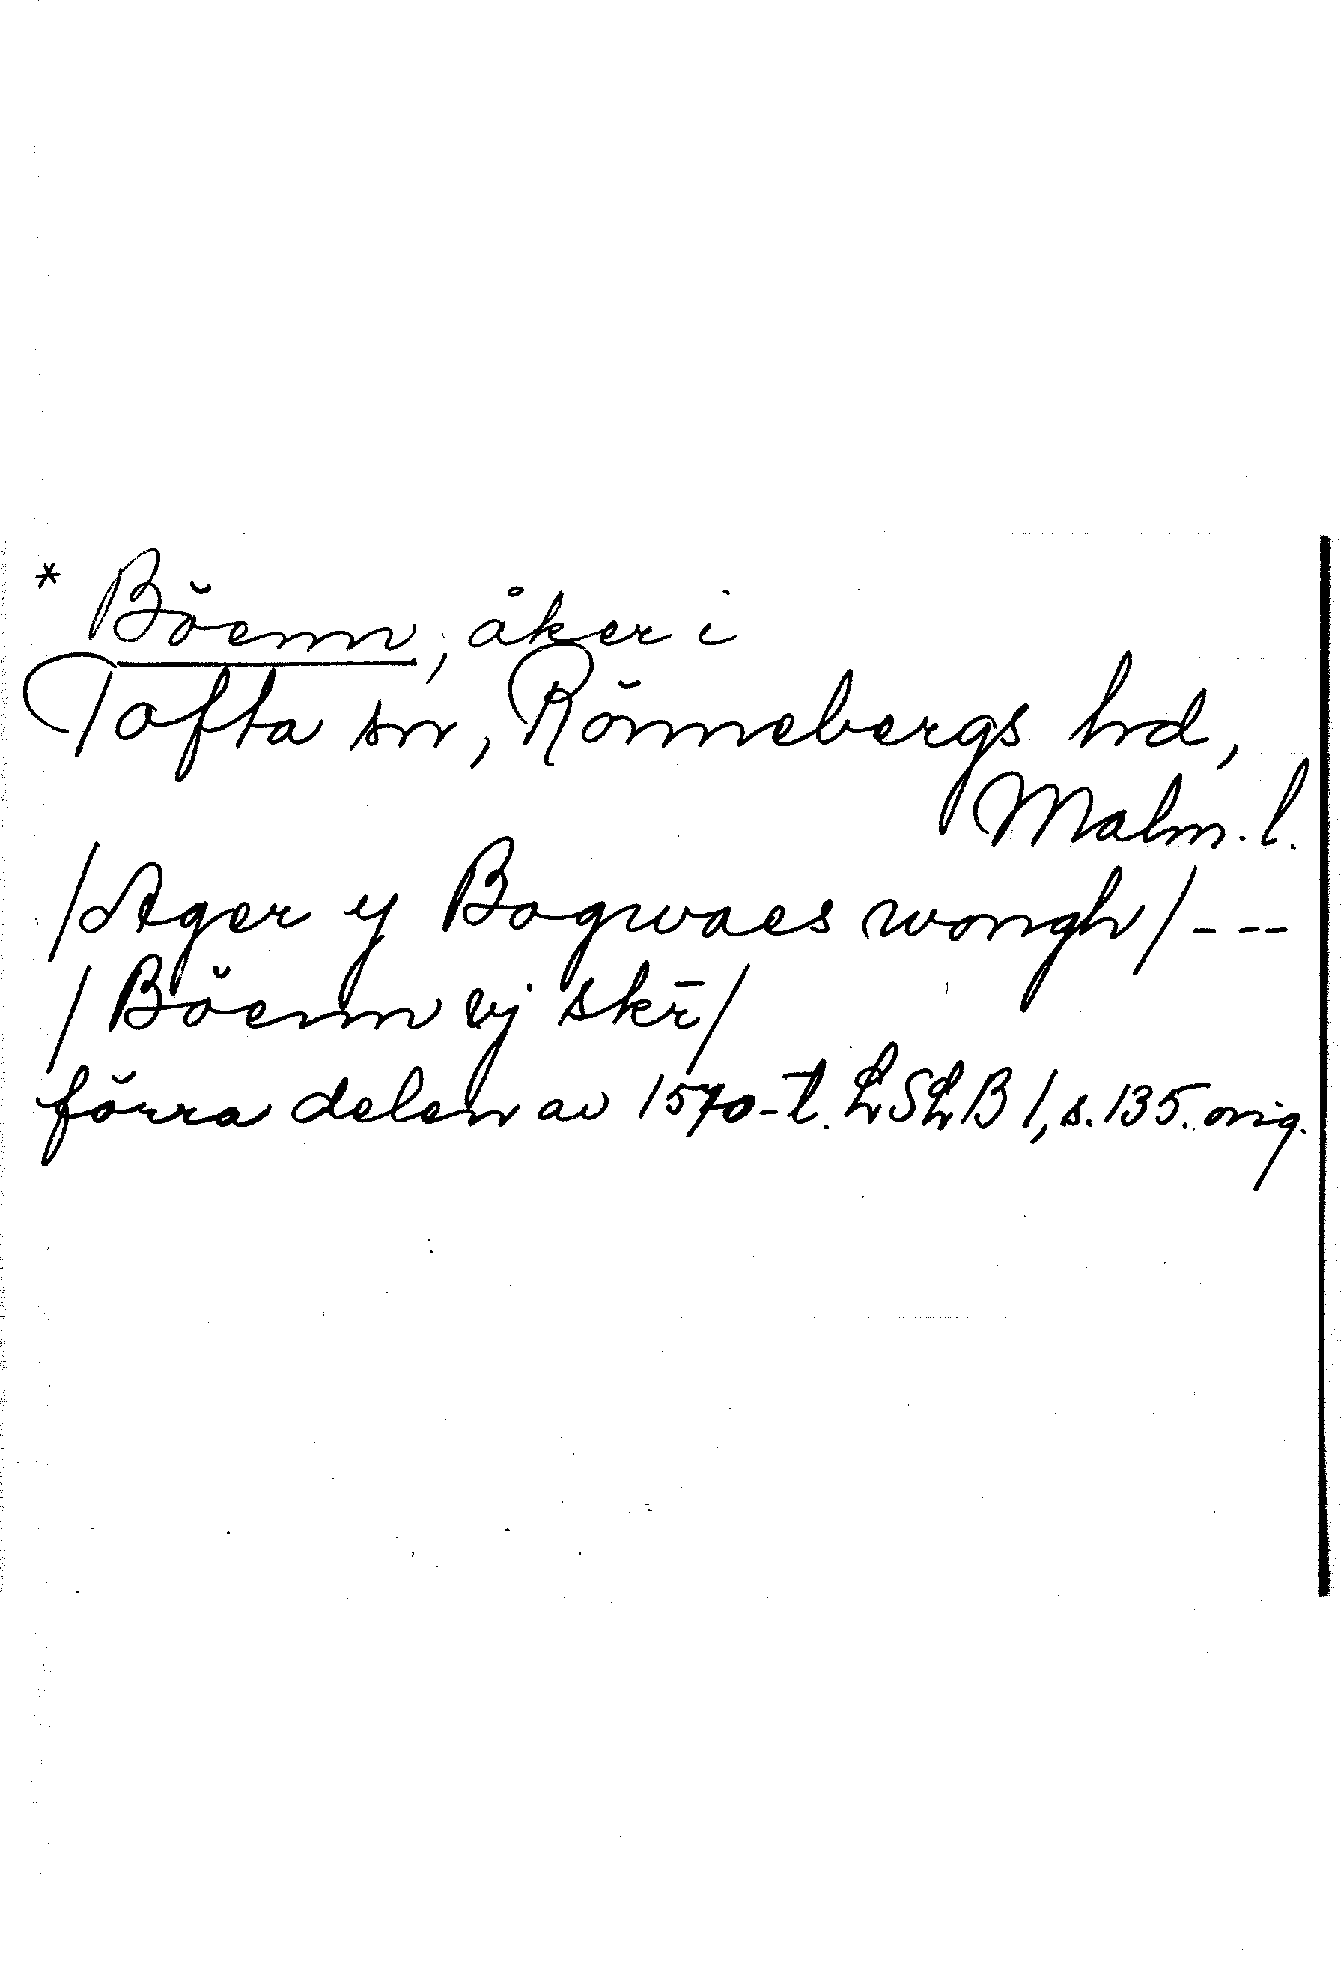 * Böenn, åker i
Tofta sn, Rönnebergs hd,
Malm. l.
/Ager y Bogwaes wongh/ ---
/Böenn vj skr̄/
förra delen av 1570-t. LSLB 1, s. 135. orig.